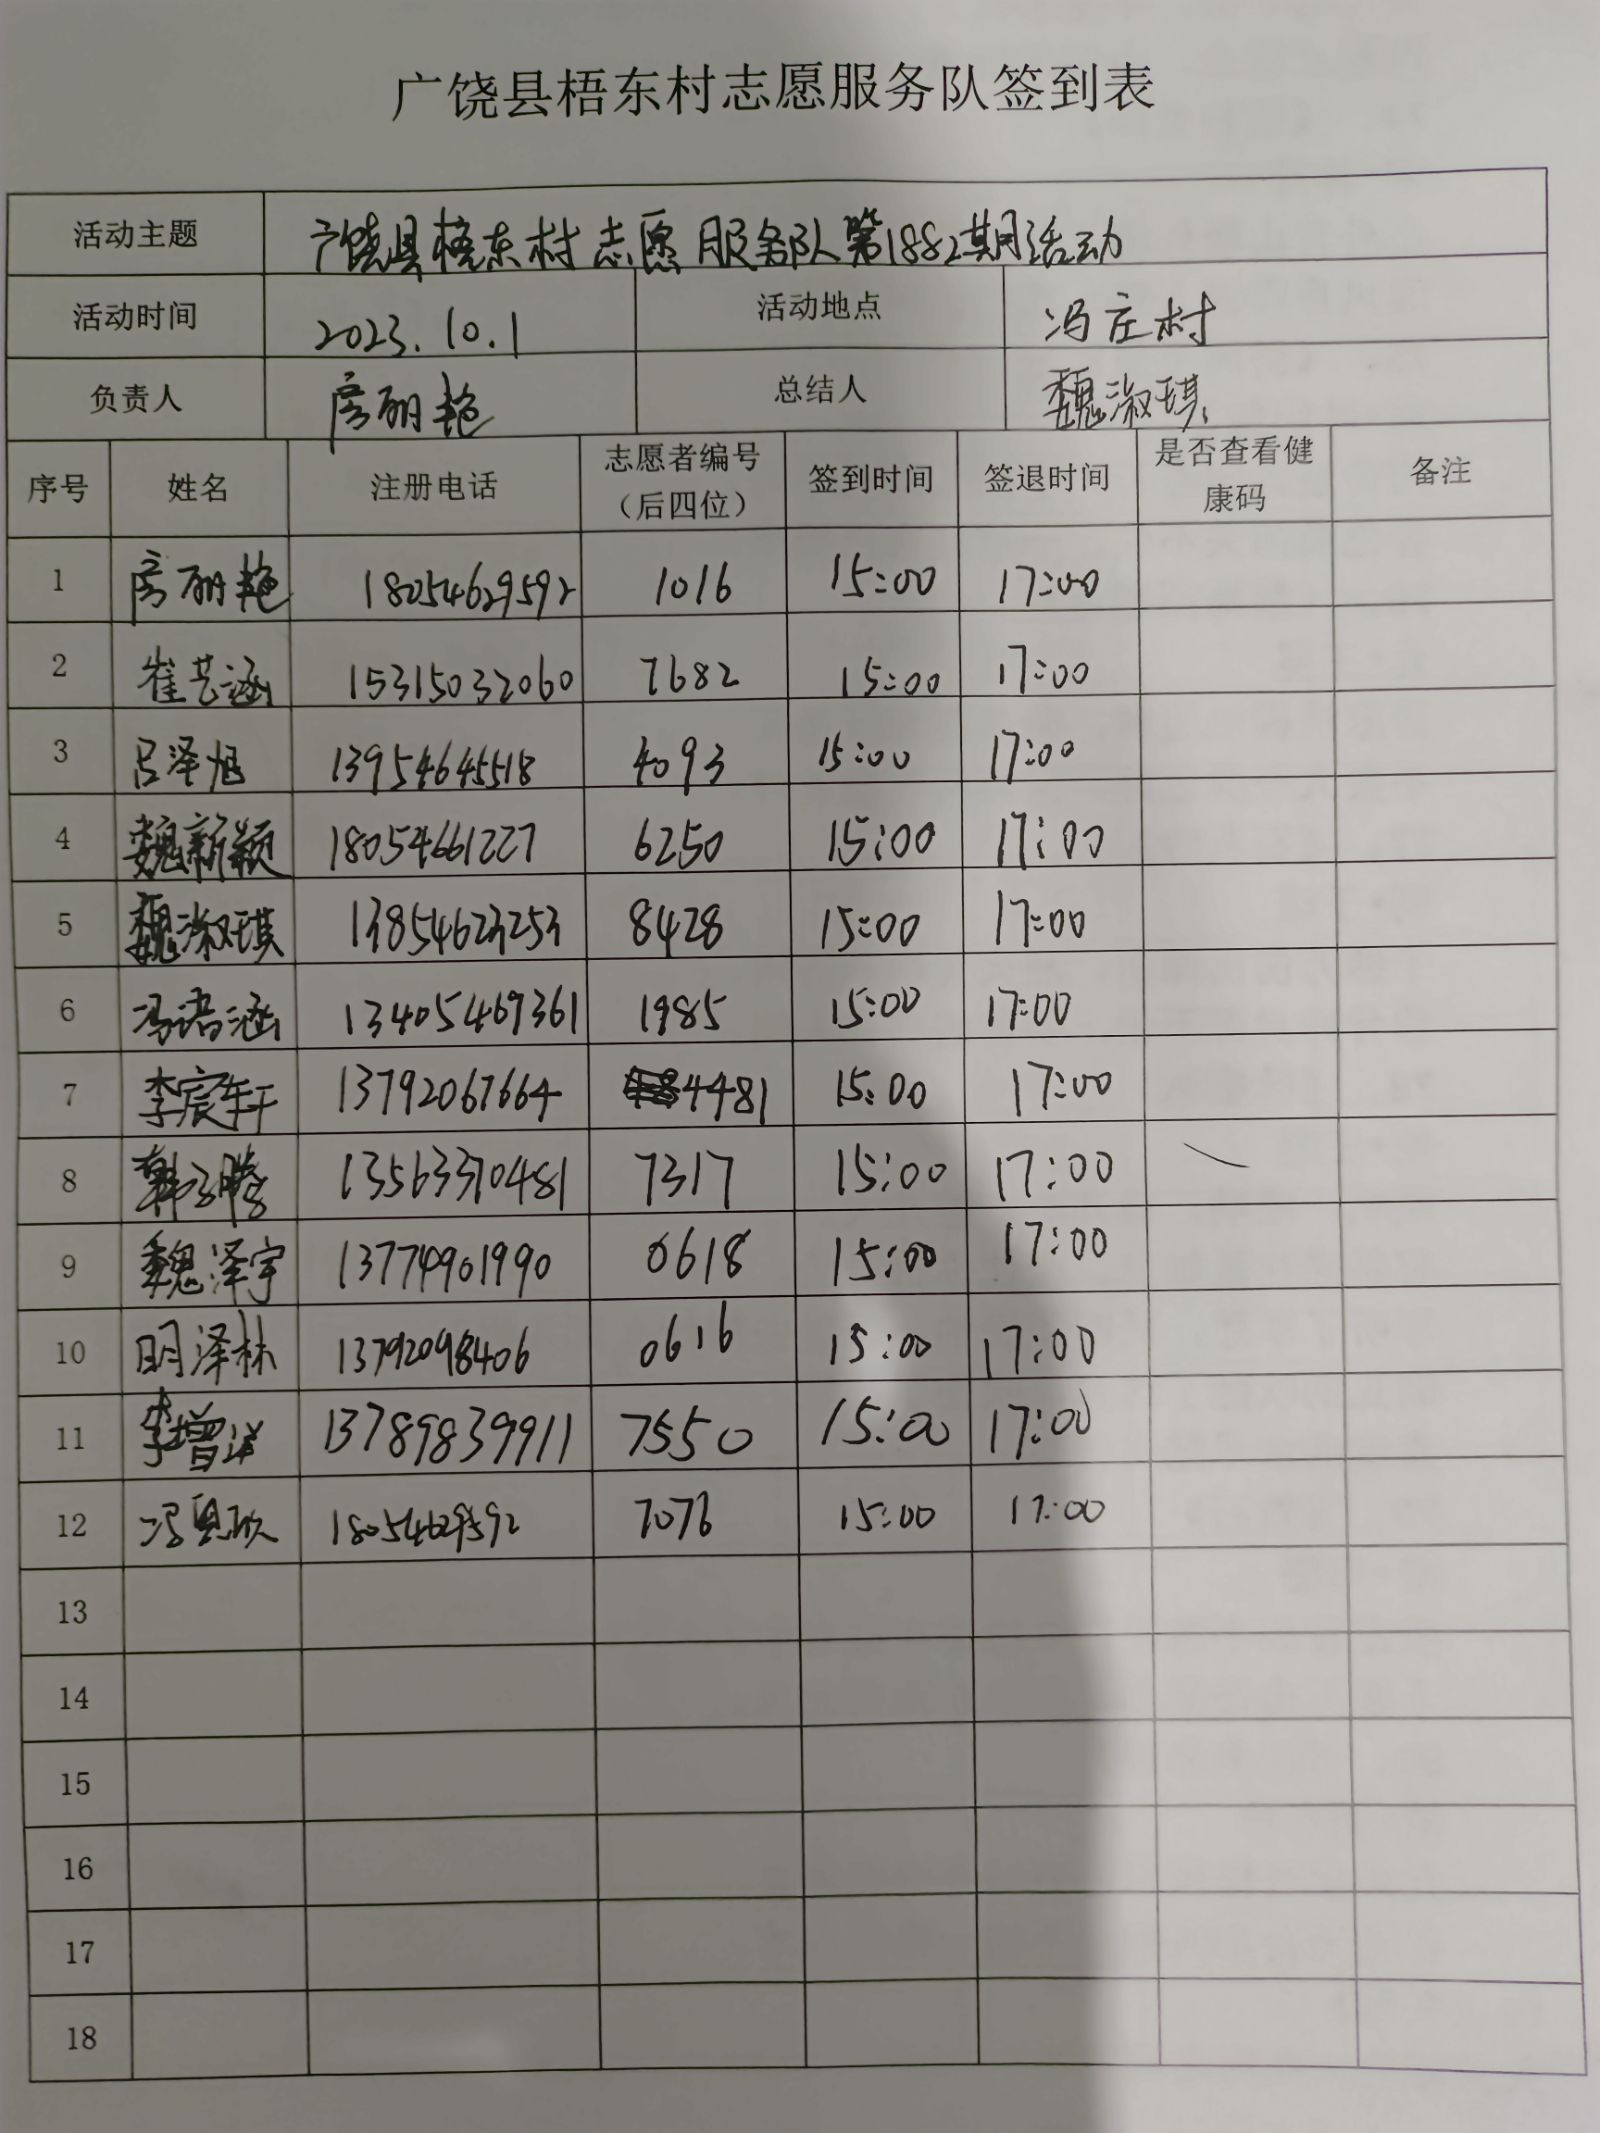 广饶县梧东村志愿服务队签到表
活动主题 广饶县梧东村志愿服务队第1882期活动
活动时间 2023.10.1 活动地点 冯庄村
负责人 房丽艳 总结人 魏淑琪
序号 姓名 注册电话 志愿者编号（后四位） 签到时间 签退时间 是否查看健康码 备注
1 房丽艳 18054629592 1016 15:00 17:00
2 崔艺涵 15315032060 7682 15:00 17:00
3 吕泽旭 13954645518 4093 15:00 17:00
4 魏新颖 18054661227 6250 15:00 17:00
5 魏淑琪 13854623253 8428 15:00 17:00
6 冯诺涵 13405469361 1985 15:00 17:00
7 李宸轩 13792067664 4481 15:00 17:00
8 韩子腾 13563370481 7317 15:00 17:00
9 魏泽宇 13774901990 0618 15:00 17:00
10 明泽林 13792098406 0616 15:00 17:00
11 李增洋 13789839911 7550 15:00 17:00
12 18054629592 7076 15:00 17:00
13
14
15
16
17
18